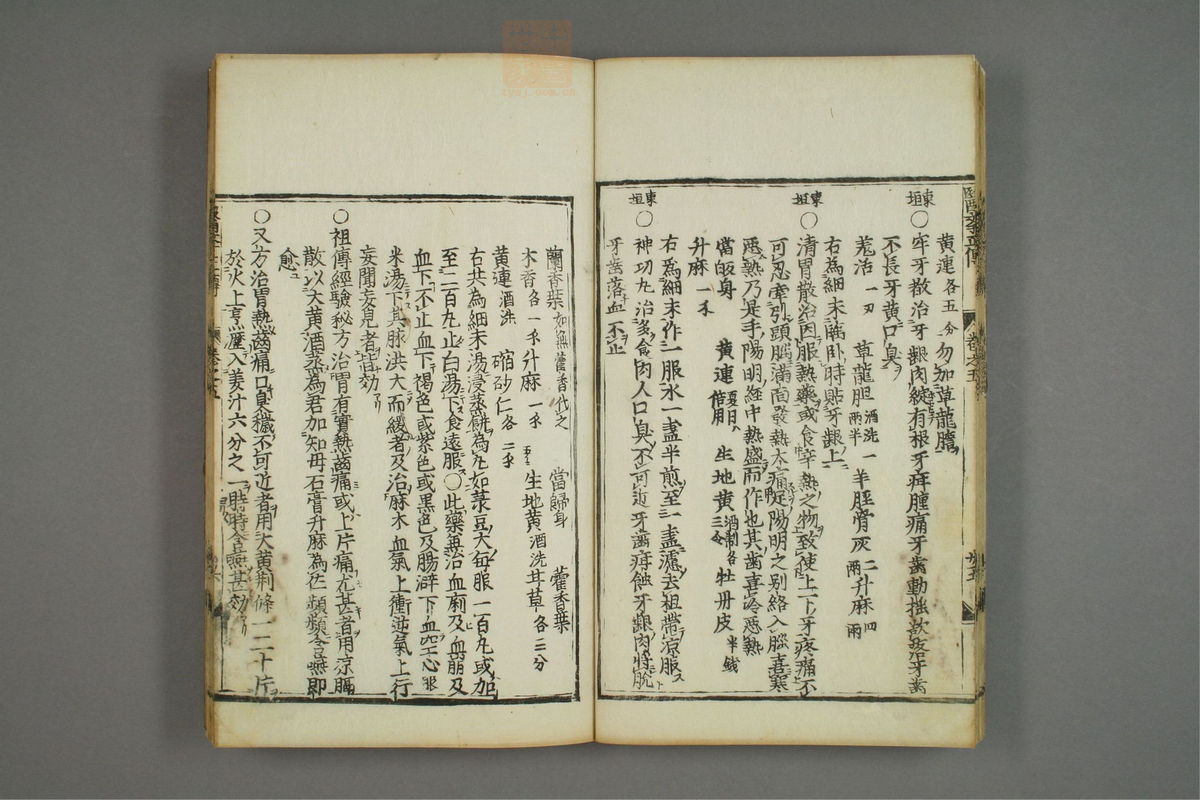 醫學正傳 卷之五 卅五
黃連各五分 勿加草龍膽
東垣〇牢牙散治牙齦肉綻有根牙疳腫痛牙齒動搖欲落牙齒
不長牙黃口臭
羌活一刃 草龍胆酒洗一兩半 羊脛骨灰二兩 升麻四兩
右為細末臨卧時貼牙齦上
東垣〇清胃散治因服熱藥或食辛熱之物致使上下牙疼痛不
可忍牽引頭腦滿面發熱大痛足陽明之别絡入腦喜寒
惡熱乃是手陽明經中熱盛而作也其齒喜冷惡熱
當皈身 黄連夏月倍用 生地黄酒制各三分 牡丹皮半錢
升麻一䥫
右為細末作一服水一盞半煎至一盞濾去柤帶凉服
東垣〇神功丸治多食肉人口臭不可近牙齒疳蝕牙齦肉將脱
牙齒落血不止
蘭香葉如無藿香代之 當歸身 藿香葉
木香各一䥫 升麻一䥫五分 生地黄酒洗 甘草各三分
黄連酒洗 縮砂仁各二䥫
右共為細末湯浸蒸餅為丸如菉豆大每服一百丸或加
至二百丸止白湯下食遠服〇此藥兼治血痢及血崩及
血下不止血下褐色或紫色或黑色及腸澼下血空心服
米湯下其脉洪大而緩者及治麻木血氣上衝逆氣上行
妄聞妄見者皆効
〇祖傳經驗秘方治胃有實熱齒痛或上片痛尤甚者用凉膈
散以大黄酒蒸為君加知毋石膏升麻為佐頻頻含嚥即
愈
〇又方治胃熱齒痛口臭穢不可近者用大黄剉條一二十片
於火上烹壓入姜汁六分之一時時含嚥甚効